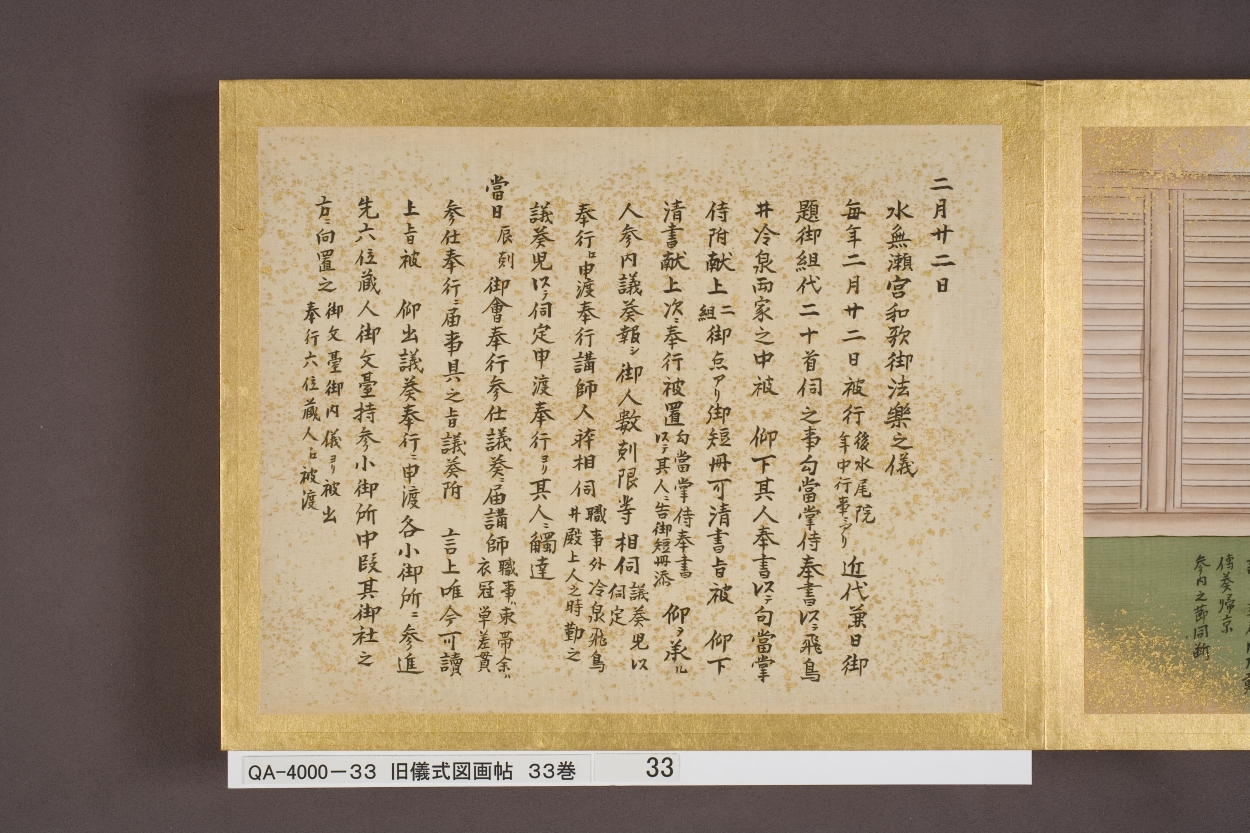 二月廿二日
水無瀬宮和歌御法樂之儀
每年二月廿二日被行後水尾院年中行事ニアリ 近代兼日御
題御組代二十首伺之事勾當掌侍奉書以テ飛鳥
井冷泉両家之中被 仰下其人奉書以テ勾當掌
侍附献上二組御点アリ御短冊可清書旨被 仰下
清書献上次ニ奉行被置勾當掌侍奉書以テ其人ニ告御短冊添 仰ヲ承ル
人参内議奏報シ御人數刻限等相伺議奏児以伺定
奉行ヘ申渡奉行講師人躰相伺職事外冷泉飛鳥井殿上人之時勤之
議奏児以テ伺定申渡奉行ヨリ其人ニ觸達
當日辰刻御會奉行参仕議奏ニ届講師職事ハ束帯余ハ衣冠単差貫
参仕奉行ニ届事具之旨議奏附 言上唯今可讀
上旨被 仰出議奏奉行ニ申渡各小御所ニ参進
先六位蔵人御文臺持参小御所中段其御社之
方ニ向置之御文臺御内儀ヨリ被出奉行六位蔵人ヘ被渡
傳奏帰京
参内之節同断
QA-4000-33 旧儀式図画帖 33巻
33